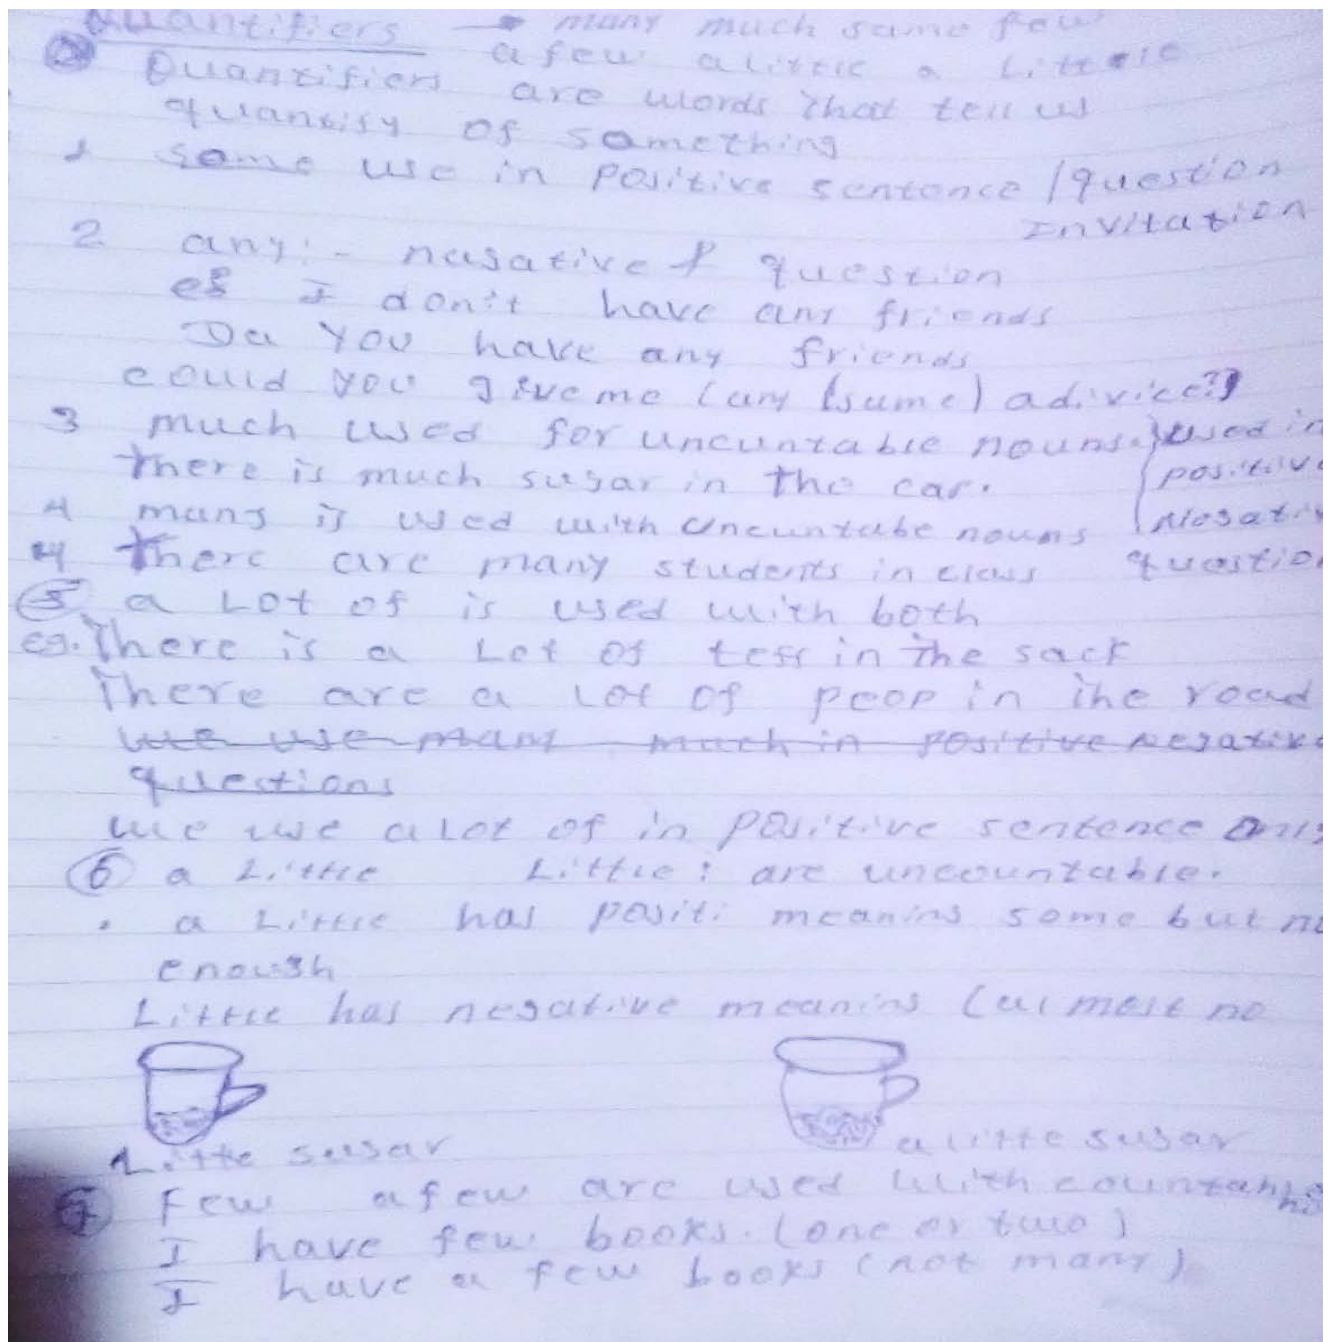 Quantifiers → many much same few
a few a little a Little
Quantifiers are words that tell us
quantity of something
1 some use in positive sentence / question
Invitation
2 any:- nagative & question
eg I don't have any friends
Do you have any friends
could you give me (any (same) advice?)
3 much used for uncuntable nouns. } used in
There is much sugar in the car. positive
4 many is used with uncuntabe nouns Negativ
4 There are many students in class question
5 a Lot of is used with both
eg. There is a Lot of teff in the sack
There are a lot of peop in the road
we use many much in positive negative
questions
we use a Lot of in positive sentence only
6 a Little Little: are uncountable.
. a Little has positi meaning some but no
enough
Little has negative meaning (almost no
Litte sugar a litte sugar
7 Few a few are used with countable
I have few books. (one or two)
I have a few books (not many)